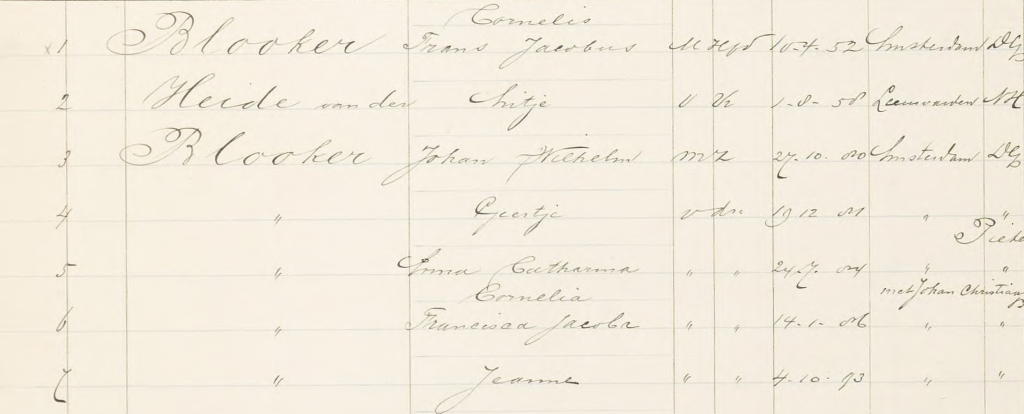 Cornelis
1 Blooker Frans Jacobus M Hfd 10-4-52 Amsterdam DG
2 Heide van der Antje V Vr 1-8-58 Leeuwarden NH
3 Blooker Johan Wilhelm m z 27-10-80 Amsterdam DG
4 " Geertje v dr 19 12 81 " "
Piete
5 " Anna Catharina " " 24-7-84 " "
Cornelia met Johan Christiaan
6 " Francisca Jacoba " " 14-1-86 " "
7 " Jeanne " " 4-10-93 " "